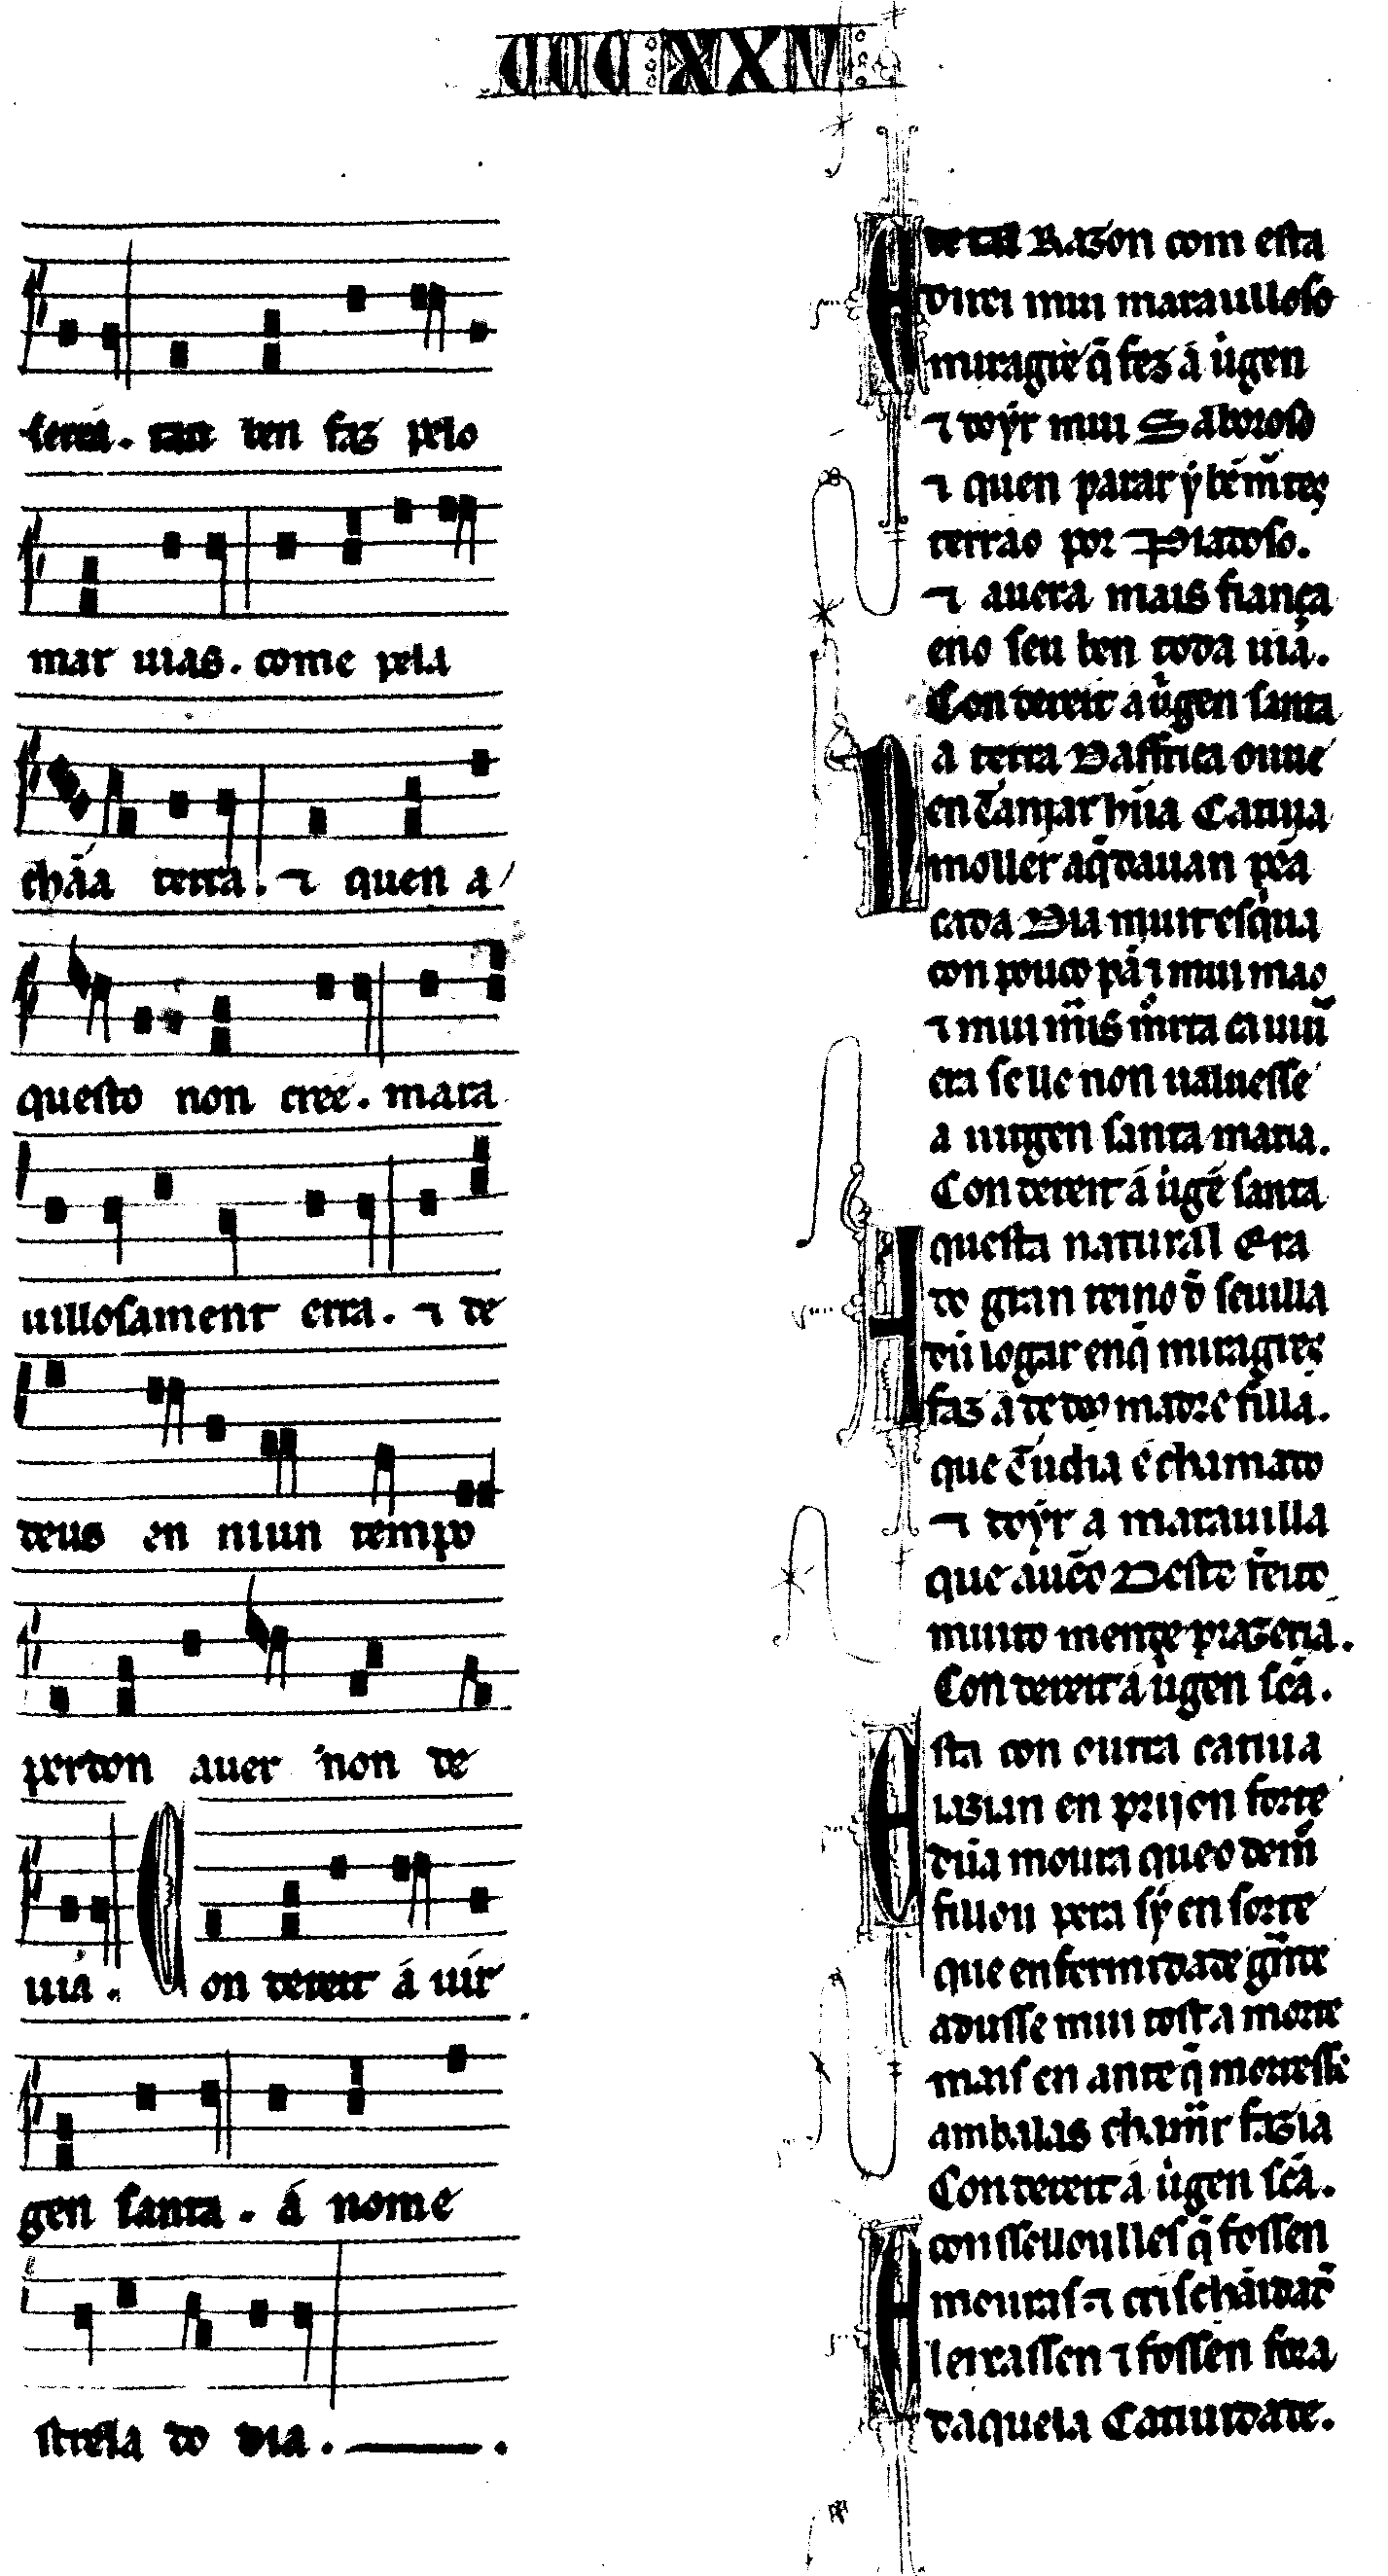 CCC XXV
serea. tan ben faz pelo
mar uias. come pela
chãa terra. ⁊ quen a
questo non cree. mara
uillosament erra. ⁊ de
deus en niun tempo
perdon auer non de
uia. Con dereit á uir
gen santa. á nome
strela do dia.
E de tal Razon com esta
uos direi mui marauilloso
miragre q̃ fez á uirgen
⁊ doyr mui Saboroso
⁊ quen parar y bẽ m̃tes
terrao por Piadoso.
⁊ auera mais fiança
eno seu ben toda uiá.
Con dereit a uirgen santa
a terra Daffrica ouue
en Tanjar hũa Catiua
moller a q̃ dauan pẽa
cada Dia muit esq̃ua
con pouco pã ⁊ mui mao
era se lle non ualuesse
a uirgen santa maria.
Con dereit á uirgẽ santa
Aquesta natural Era
do gran reino d̃ seuilla
dũ logar en q̃ miragres
faz a de deus madre ⁊ filla.
que Tudia é chamado
⁊ doyr a marauilla
que auẽo Desto feito
muito mente prazeria.
Con dereit á uirgen sc̃a.
Esta con outra catiua
iazian en prijon forte
dũa moura queo demo
fillou pera sy en sorte
que enfermidade g̃nde
adusse mui tost a morte
mais en ante q̃ morresse
ambalas chamar fazia
Con dereit á uirgen sc̃a.
E consselloulles q̃ fossen
mouras ⁊ crischãidade
leixassen ⁊ fossen fora
daquela Catiuidade.